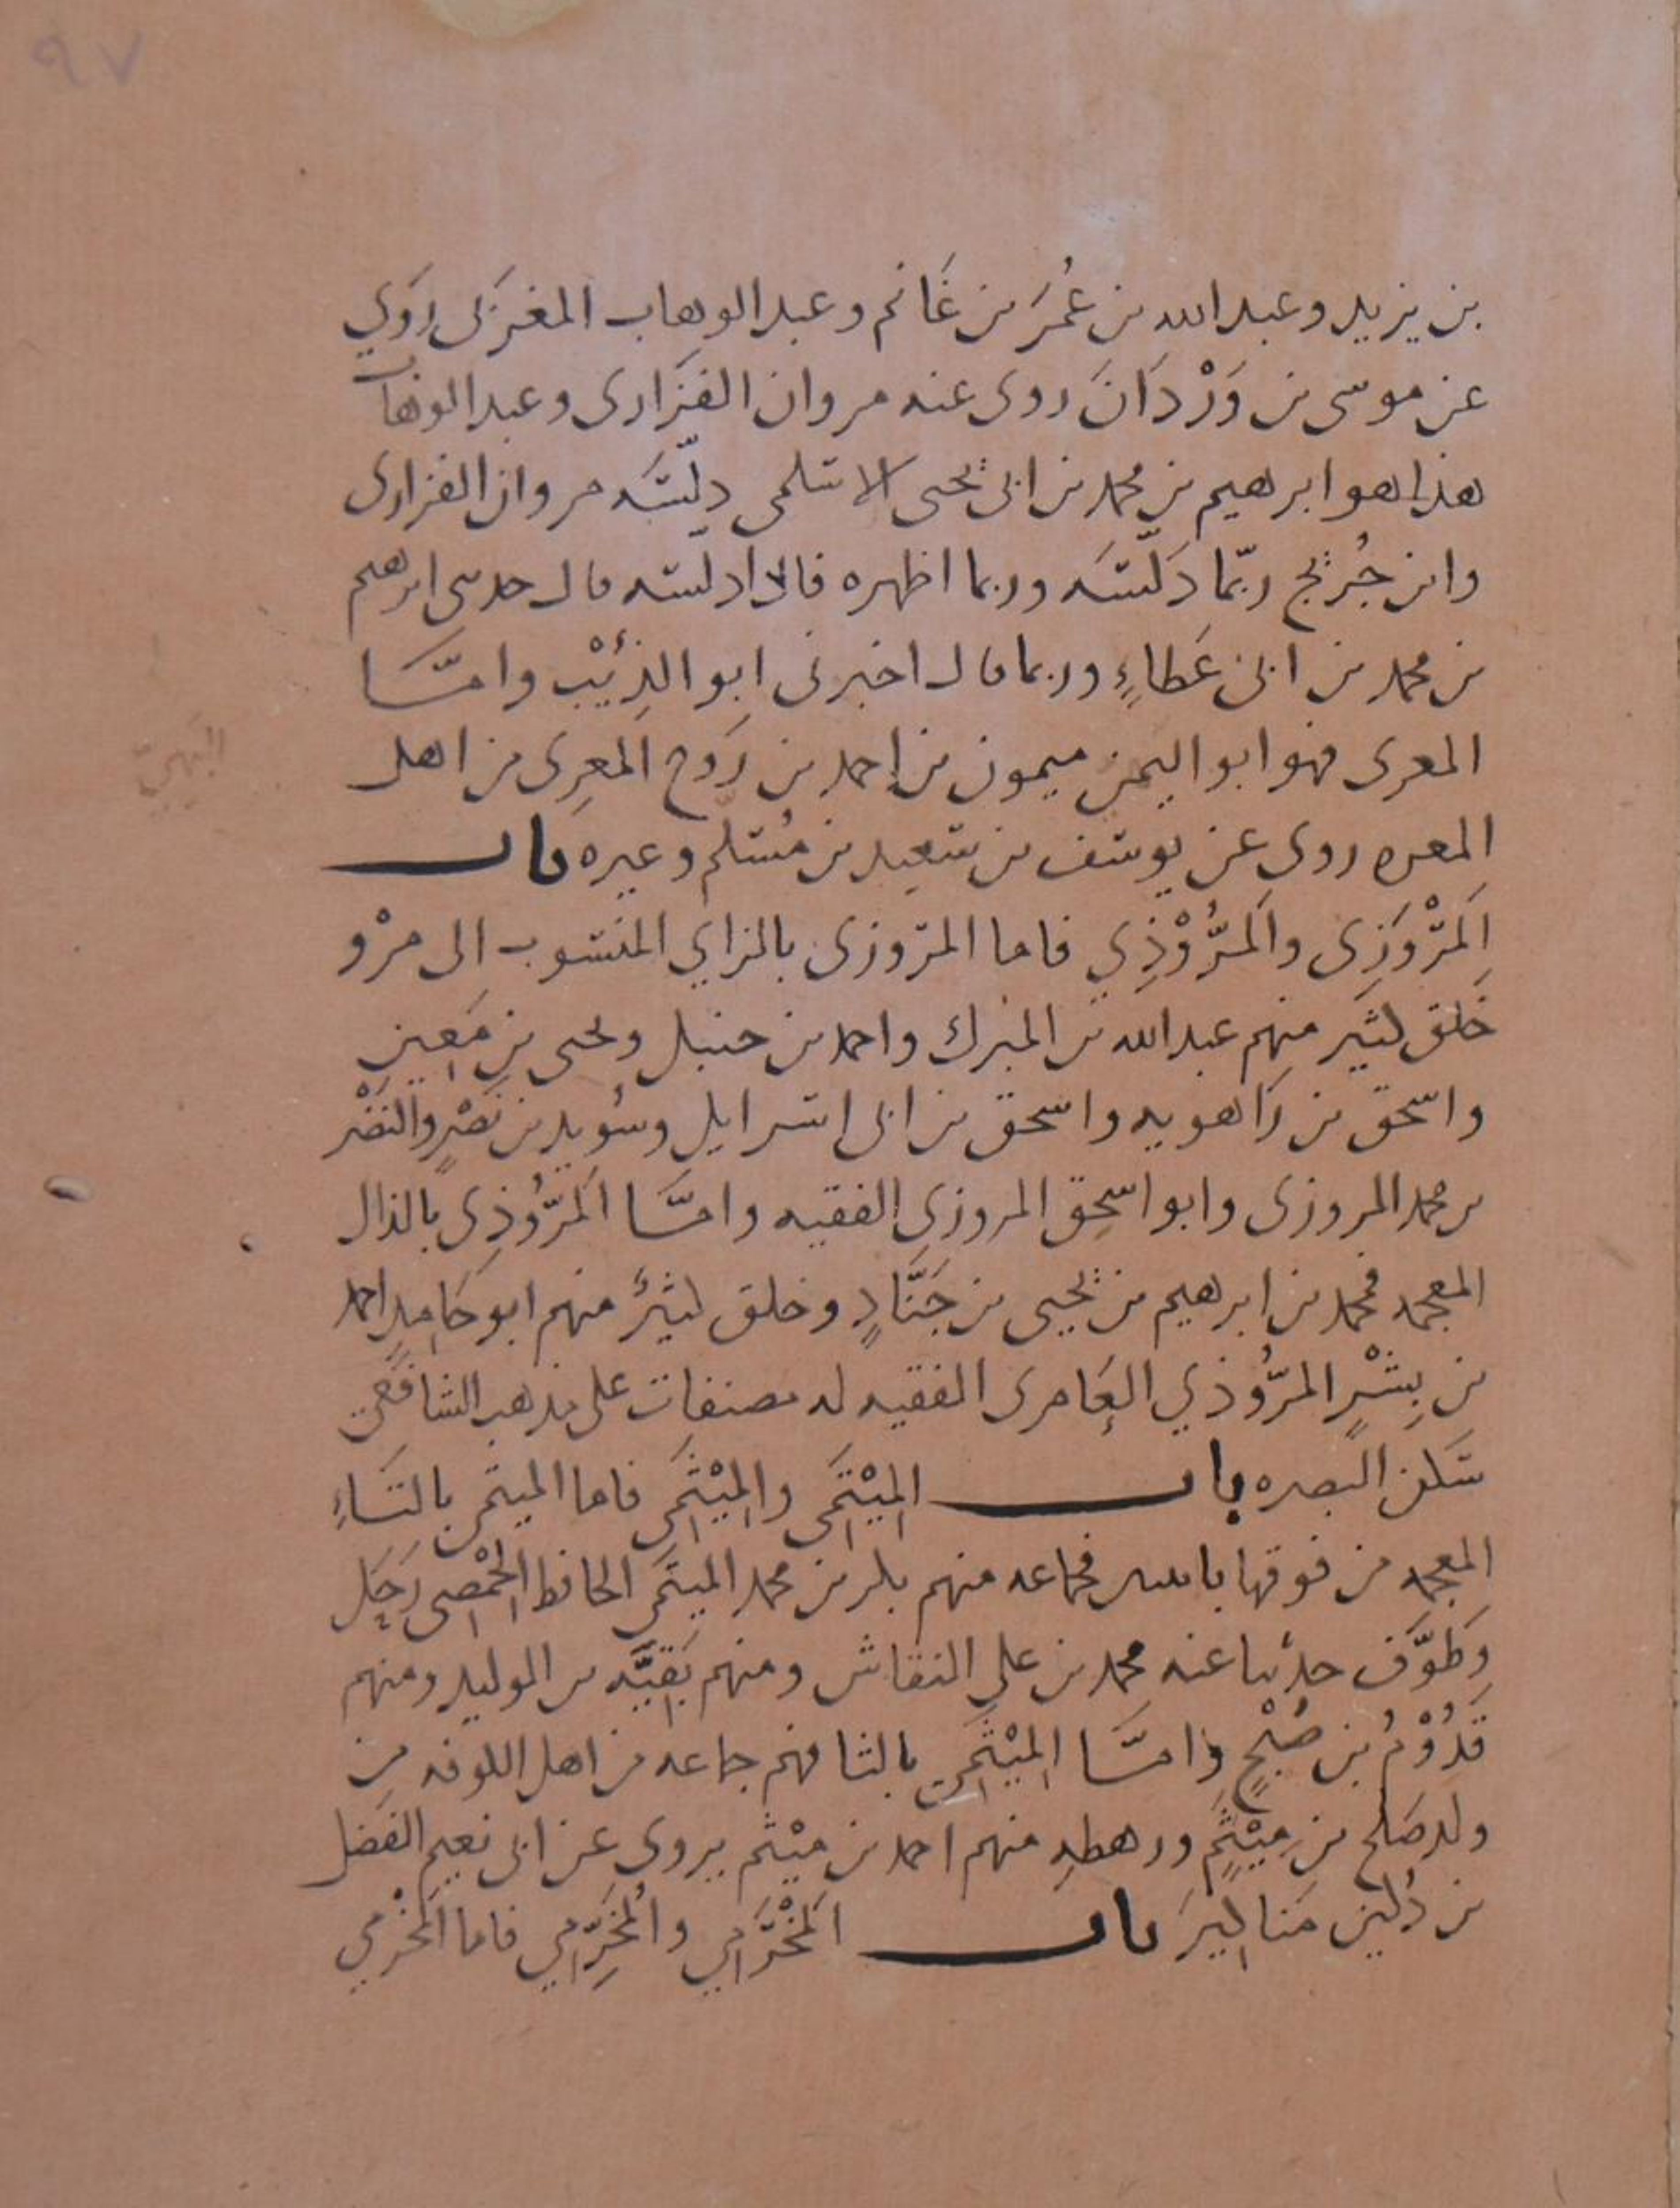 ٩٧
بن يزيد وعبد الله بن عُمَرَ بن غَانم وعبد الوهاب المغربى رَوَي
عن موسى بن وَرْدَانَ روى عنه مروان الفَزَارى وعبد الوهاب
هذا هو ابرهيم بن محمد بن ابى يحيى الاسلمى دلّسَه مروان الفزارى
وابن جُرَيج ربّما دَلّسَه وربما اظهره فاذا دلسه قال حدثنى ابرهيم
بن محمد بن ابى عَطاءٍ وربما قال اخبرنى ابو الذِئْب وامَّا
المعرى فهو ابو اليمن ميمون بن احمد بن رَوح المعرِى من اهل
المعره روى عن يوسف بن سَعِيد بن مُسَلم وغيره باب
اَلمَرْوَزِى واَلمَرُّوْذِي فاما المرْوزى بالزاي المنسوب الى مرْو
خَلق كثير منهم عبد الله بن المبرك واحمد بن حنبل ويحيى بن مَعِين
واسحق بن رَاهويه واسحق بن ابى اسرايل وسُويد بن نَصْرٍ والنَضْر
بن محمد المروزى وابو اسحق المروزي الفقيه وامَّا اَلمَرُّوذِى بالذال
المعجمه فمحمد بن ابرهيم بن يحيى بن جَنَّادٍ وخلق كثيرٌ منهم ابو حَامِدٍ احمد
بن بِشْرٍ المرُّوذي العَامرى الفقيه له مصنفات على مذهب الشافعي
سَكن البصره باب المِيْتَمَى والمِيْثَمِى فاما الميتمى بالتَاءِ
المعجمه من فوقها باثنتين فجماعه منهم بكر بن محمد الميتمَى الحافظ الحِمْصى رَحَل
وَطَوَّف حدثنا عنه محمد بن علي النقاش ومنهم بَقِيَّه بن الوليد ومنهم
قَدُوْمُ بن صُبْحٍ وامَّا المِيْثَمِى بالثا فهم جماعه من اهل الكوفه من
ولد صَلح بن مِيْثَمٍ ورهطه منهم احمد بن ميْثم يروى عن ابى نعيم الفضل
بن دُكين مَناكيرَ باب اَلمَخْرَمِي والمُخَرِّمِي فاما اَلمَخْرمي